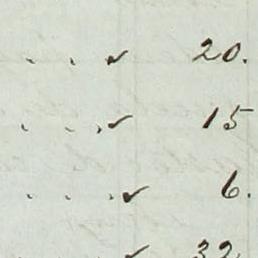 . . ✓ 20.
. . . ✓ 15
. . . ✓ 6.
. . . ✓ 32